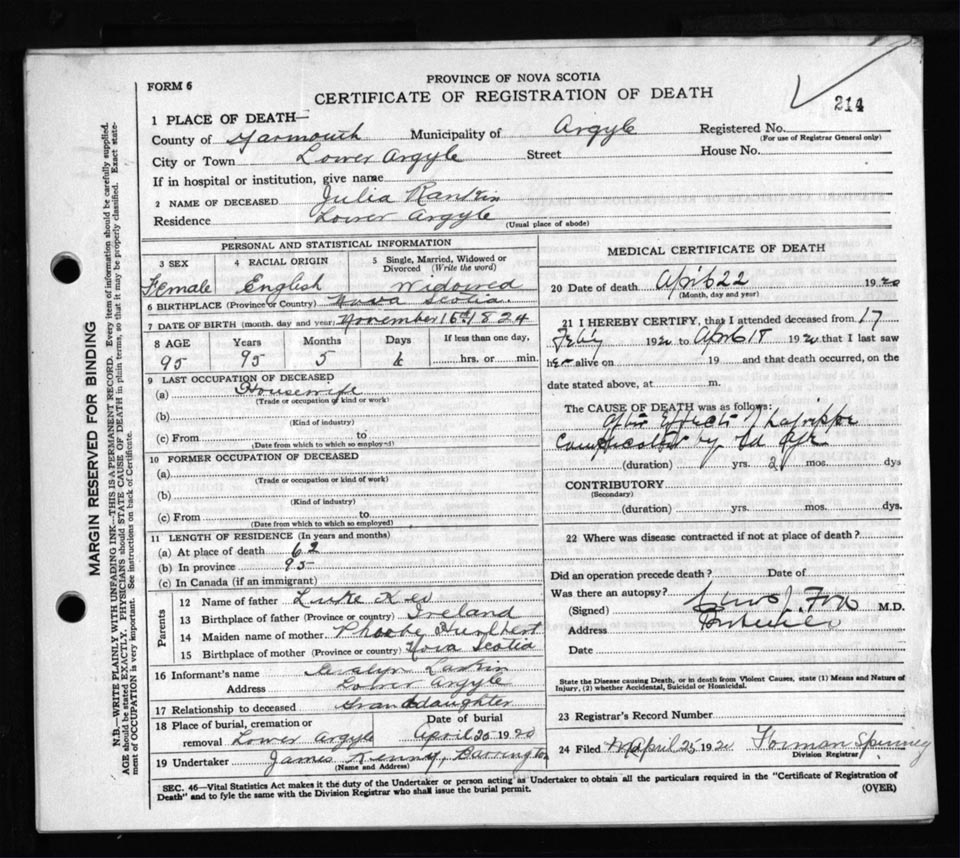 PROVINCE OF NOVA SCOTIA
FORM 6
CERTIFICATE OF REGISTRATION OF DEATH
214
1 PLACE OF DEATH—
County of Yarmouth Municipality of Argyle Registered No.
(For use of Registrar General only)
City or Town Lower Argyle Street House No.
If in hospital or institution, give name
2 NAME OF DECEASED Julia Rankin
Residence Lower Argyle
(Usual place of abode)
PERSONAL AND STATISTICAL INFORMATION
3 SEX 4 RACIAL ORIGIN 5 Single, Married, Widowed or Divorced (Write the word)
Female English Widowed
6 BIRTHPLACE (Province or Country) Nova Scotia
7 DATE OF BIRTH (month, day and year) November 16th 1824
8 AGE Years Months Days If less than one day,
95 95 5 hrs. or min.
9 LAST OCCUPATION OF DECEASED
(a) Housewife
(Trade or occupation of kind or work)
(b)
(Kind of industry)
(c) From to
(Date from which to which so employed)
10 FORMER OCCUPATION OF DECEASED
(a)
(Trade or occupation of kind or work)
(b)
(Kind of industry)
(c) From to
(Date from which to which so employed)
11 LENGTH OF RESIDENCE (In years and months)
(a) At place of death 62
(b) In province 95
(c) In Canada (if an immigrant)
Parents
12 Name of father Luke
13 Birthplace of father (Province or country) Ireland
14 Maiden name of mother Phoebe Hurlbert
15 Birthplace of mother (Province or country) Nova Scotia
16 Informant's name Evalyn Larkin
Address Lower Argyle
17 Relationship to deceased Granddaughter
18 Place of burial, cremation or removal Lower Argyle Date of burial April 25 1920
19 Undertaker James Kenny, Barrington
(Name and Address)
MEDICAL CERTIFICATE OF DEATH
20 Date of death April 22 1920
(Month, day and year)
21 I HEREBY CERTIFY, that I attended deceased from 17
Feb'y 1920 to April 18 1920 that I last saw
her alive on 19 and that death occurred, on the
date stated above, at m.
The CAUSE OF DEATH was as follows:
After Effects of Lagrippe
complicated by old age
(duration) yrs. 2 mos. dys
CONTRIBUTORY
(Secondary)
(duration) yrs. mos. dys.
22 Where was disease contracted if not at place of death?
Did an operation precede death? Date of
Was there an autopsy?
(Signed) Fox M.D.
Address Pubnico
Date
State the Disease causing Death, or in death from Violent Causes, state (1) Means and Nature of
Injury, (2) whether Accidental, Suicidal or Homicidal.
23 Registrar's Record Number
24 Filed April 25 1920 Forman Spinney
Division Registrar
SEC. 46—Vital Statistics Act makes it the duty of the Undertaker or person acting as Undertaker to obtain all the particulars required in the "Certificate of Registration of
Death" and to fyle the same with the Division Registrar who shall issue the burial permit. (OVER)
MARGIN RESERVED FOR BINDING
N.B.—WRITE PLAINLY WITH UNFADING INK—THIS IS A PERMANENT RECORD. Every item of information should be carefully supplied.
AGE should be stated EXACTLY. PHYSICIANS should STATE CAUSE OF DEATH in plain terms, so that it may be properly classified. Exact state-
ment of OCCUPATION is very important. See instructions on back of Certificate.